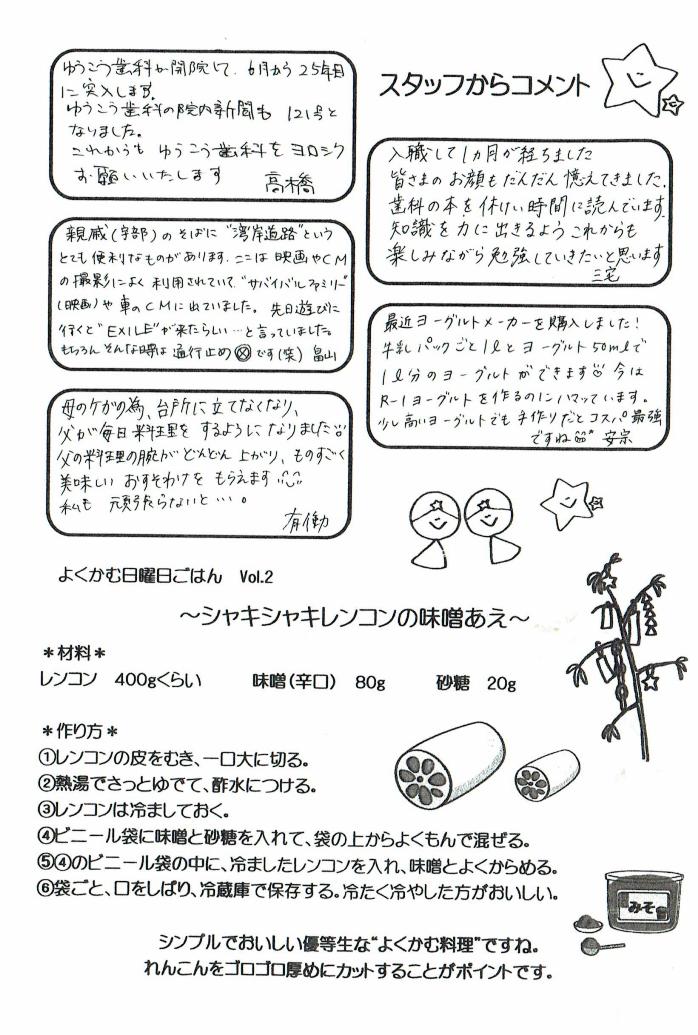 ゆうこう歯科が開院して、6月から25年目
に突入します。
ゆうこう歯科の院内新聞も 121号と
なりました。
これからも ゆうこう歯科を ヨロシク
お願いいたします 高橋
スタッフからコメント
入職して1カ月が経ちました
皆さまのお顔もだんだん憶えてきました。
歯科の本を休けい時間に読んでいます。
知識を力に出きるようこれからも
楽しみながら勉強していきたいと思います
三宅
親戚(宇部)のそばに"湾岸道路"という
とても便利なものがあります。ここは映画やCM
の撮影によく利用されていて"サバイバルファミリー"
(映画)や車のCMに出ていました。先日遊びに
行くと"EXILE"が来たらしい…と言っていました。
もちろんそんな時は通行止めⓧです(笑) 畠山
最近ヨーグルトメーカーを購入しました!
牛乳パックごと1lとヨーグルト50mlで
1l分のヨーグルトができます 今は
R-1ヨーグルトを作るのにハマっています。
少し高いヨーグルトでも手作りだとコスパ最強
ですね 安宗
母のケガの為、台所に立てなくなり、
父が毎日料理をするようになりました
父の料理の腕がどんどん上がり、ものすごく
美味しいおすそわけをもらえます
私も 頑張らないと…。
有働
よくかむ日曜日ごはん Vol.2
~シャキシャキレンコンの味噌あえ~
*材料*
レンコン 400gくらい 味噌(辛口) 80g 砂糖 20g
*作り方*
①レンコンの皮をむき、一口大に切る。
②熱湯でさっとゆでて、酢水につける。
③レンコンは冷ましておく。
④ビニール袋に味噌と砂糖を入れて、袋の上からよくもんで混ぜる。
⑤④のビニール袋の中に、冷ましたレンコンを入れ、味噌とよくからめる。
⑥袋ごと、口をしばり、冷蔵庫で保存する。冷たく冷やした方がおいしい。
みそ
シンプルでおいしい優等生な"よくかむ料理"ですね。
れんこんをゴロゴロ厚めにカットすることがポイントです。